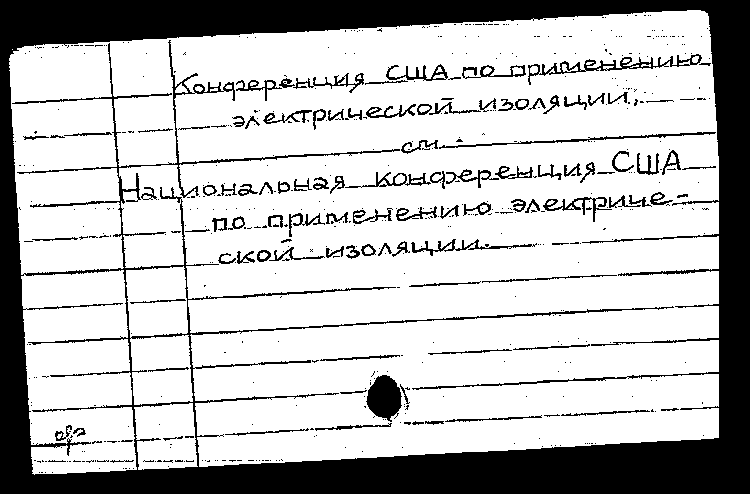 Конференция США по применению
электрической изоляции,
см.
Национальная конференция США
по применению электриче-
ской изоляции.